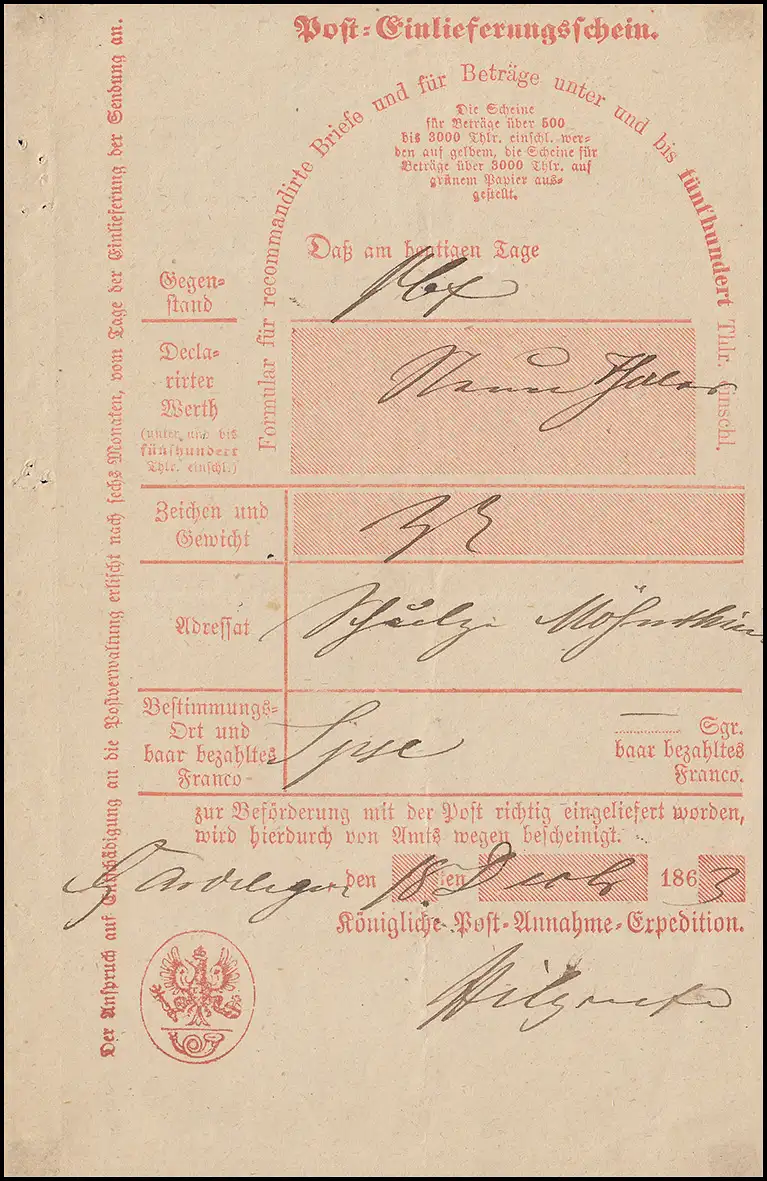 Post-Einlieferungsschein.
Formular für recommandirte Briefe und für Beträge unter und bis fünfhundert Thlr. einschl.
Die Scheine
für Beträge über 500
bis 3000 Thlr. einschl. wer-
den auf gelbem, die Scheine für
Beträge über 3000 Thlr. auf
grünem Papier aus-
gestellt.
Daß am heutigen Tage
Gegen-
stand
Decla-
rirter
Werth
(unter und bis
fünfhundert
Thlr. einschl.)
Neun Thaler
Zeichen und
Gewicht
Adressat
Schulze
Bestimmungs-
Ort und
baar bezahltes
Franco
Sgr.
baar bezahltes
Franco.
zur Beförderung mit der Post richtig eingeliefert worden,
wird hierdurch von Amts wegen bescheinigt.
Gardelegen den 18ten Decbr 1863
Königliche Post-Annahme-Expedition.
Der Anspruch auf Entschädigung an die Postverwaltung erlischt nach sechs Monaten, vom Tage der Einlieferung der Sendung an.